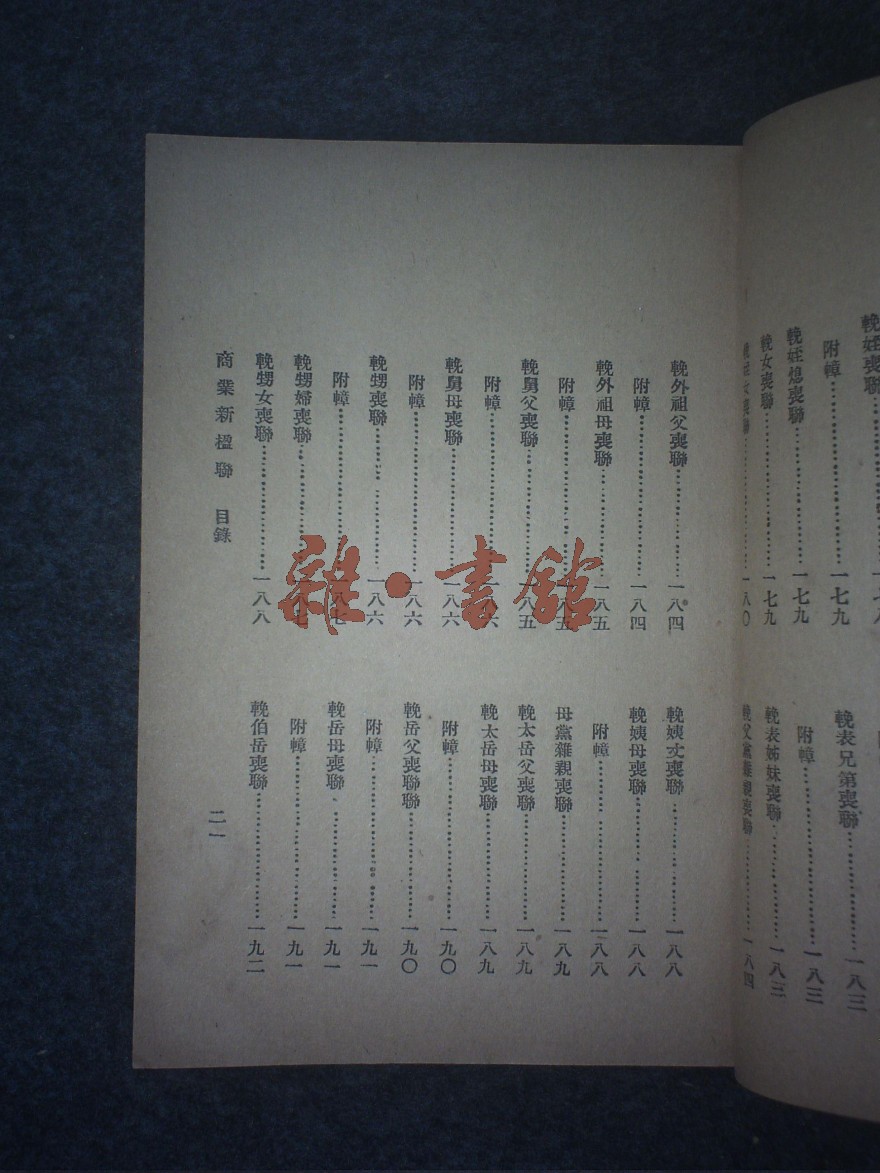 輓姪喪聯
附幛……………一七九
輓姪媳喪聯……………一七九
輓女喪聯……………一七九
輓姪女喪聯……………一八〇
輓表兄第喪聯……………一八三
附幛……………一八三
輓表姊妹喪聯……………一八三
輓父黨雜親喪聯……………一八四
輓外祖父喪聯……………一八四
附幛……………一八四
輓外祖母喪聯……………一八五
附幛……………一八五
輓舅父喪聯……………一八五
附幛……………一八六
輓舅母喪聯……………一八六
附幛……………一八六
輓甥喪聯……………一八六
附幛……………一八七
輓甥婦喪聯……………一八七
輓甥女喪聯……………一八八
輓姨丈喪聯……………一八八
輓姨母喪聯……………一八八
附幛……………一八八
母黨雜親喪聯……………一八九
輓太岳父喪聯……………一八九
輓太岳母喪聯……………一八九
附幛……………一九〇
輓岳父喪聯聯……………一九〇
附幛……………一九一
輓岳母喪聯……………一九一
附幛……………一九一
輓伯岳喪聯……………一九二
商業新楹聯 目錄 二一
雜·書館